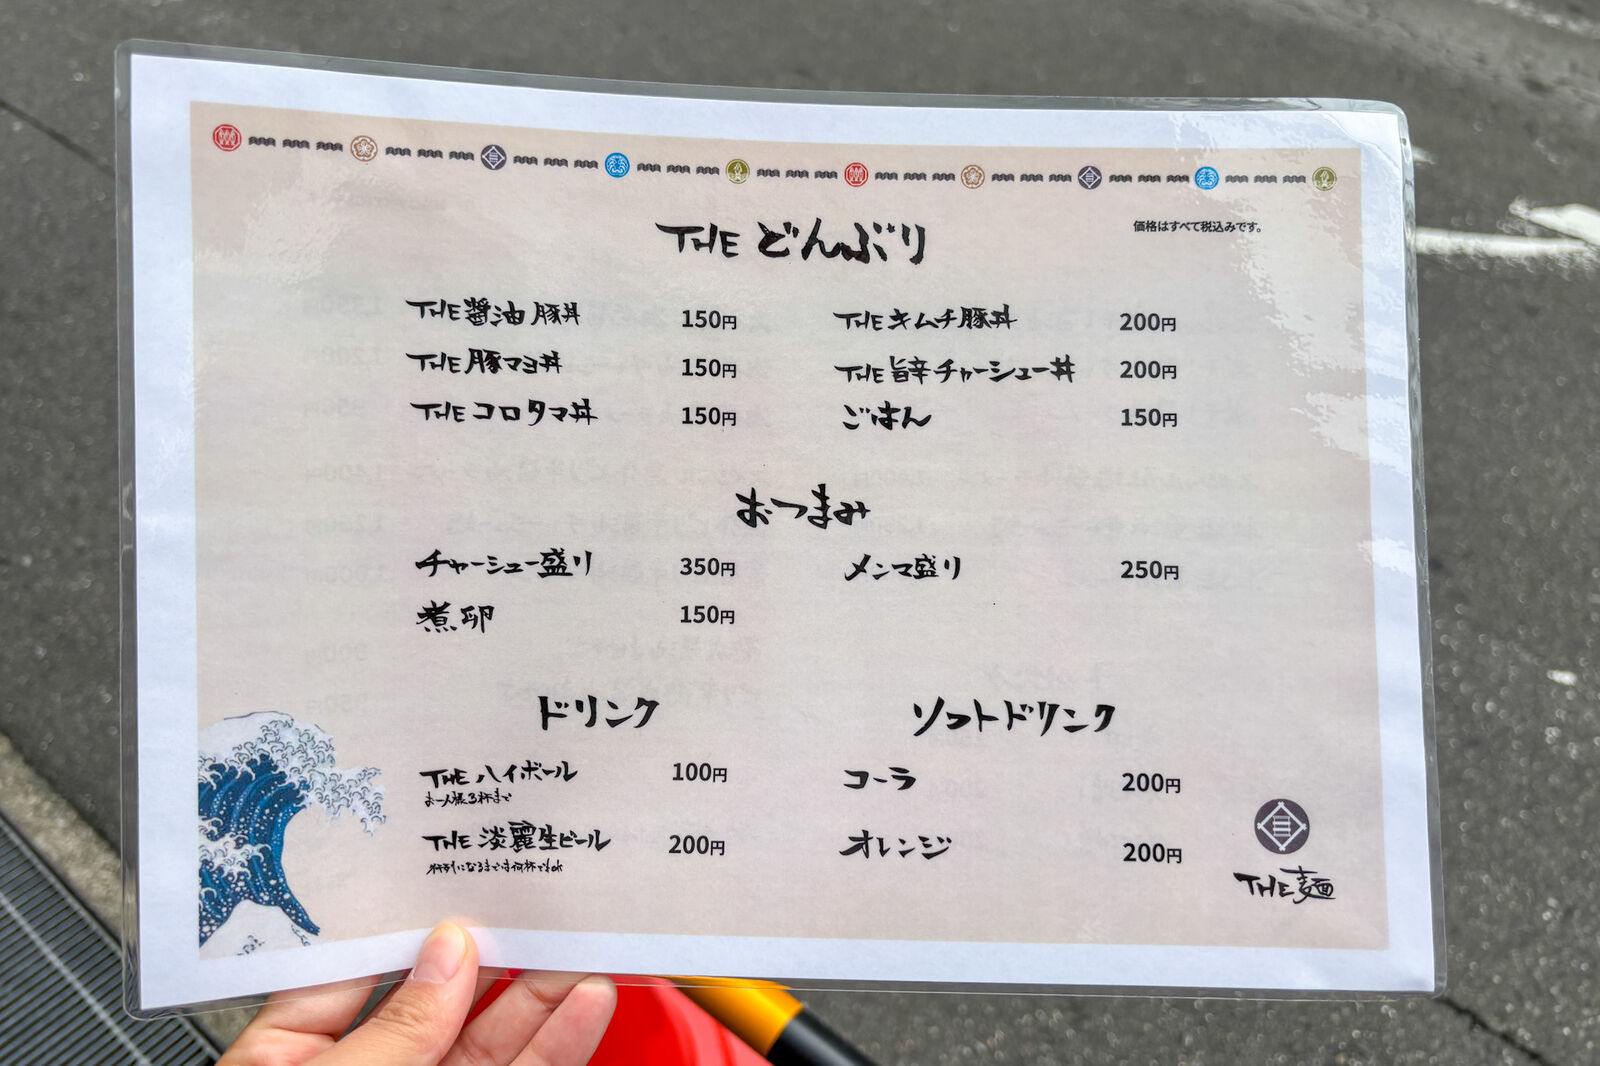 THE どんぶり
価格はすべて税込みです。
THE醤油豚丼 150円
THEキムチ豚丼 200円
THE豚マヨ丼 150円
THE旨辛チャーシュー丼 200円
THEコロタマ丼 150円
ごはん 150円
おつまみ
チャーシュー盛り 350円
メンマ盛り 250円
煮卵 150円
ドリンク
ソフトドリンク
THE ハイボール 100円
お一人様3杯まで
コーラ 200円
THE 淡麗生ビール 200円
行列になるまでは何杯でもok
オレンジ 200円
THE麺